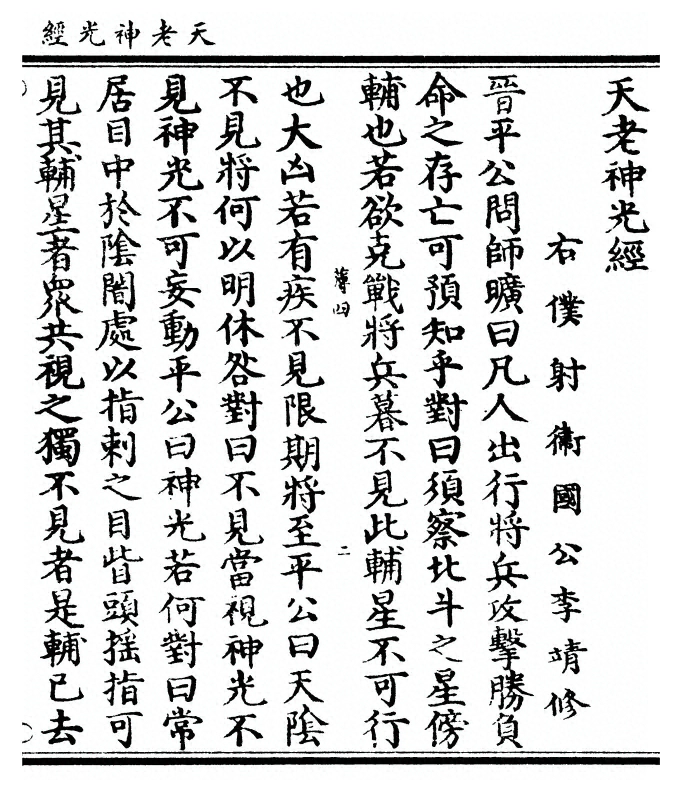 天老神光經
天老神光經
右僕射衞國公李靖修
晉平公問師曠曰凡人出行將兵攻擊勝負
命之存亡可預知乎對曰須察北斗之星傍
輔也若欲克戰將兵暮不見此輔星不可行
薄四
二
也大凶若有疾不見限期將至平公曰天陰
不見將何以明休咎對曰不見當視神光不
見神光不可妄動平公曰神光若何對曰常
居目中於陰闇處以指刺之目眥頭摇指可
見其輔星者衆共視之獨不見者是輔已去